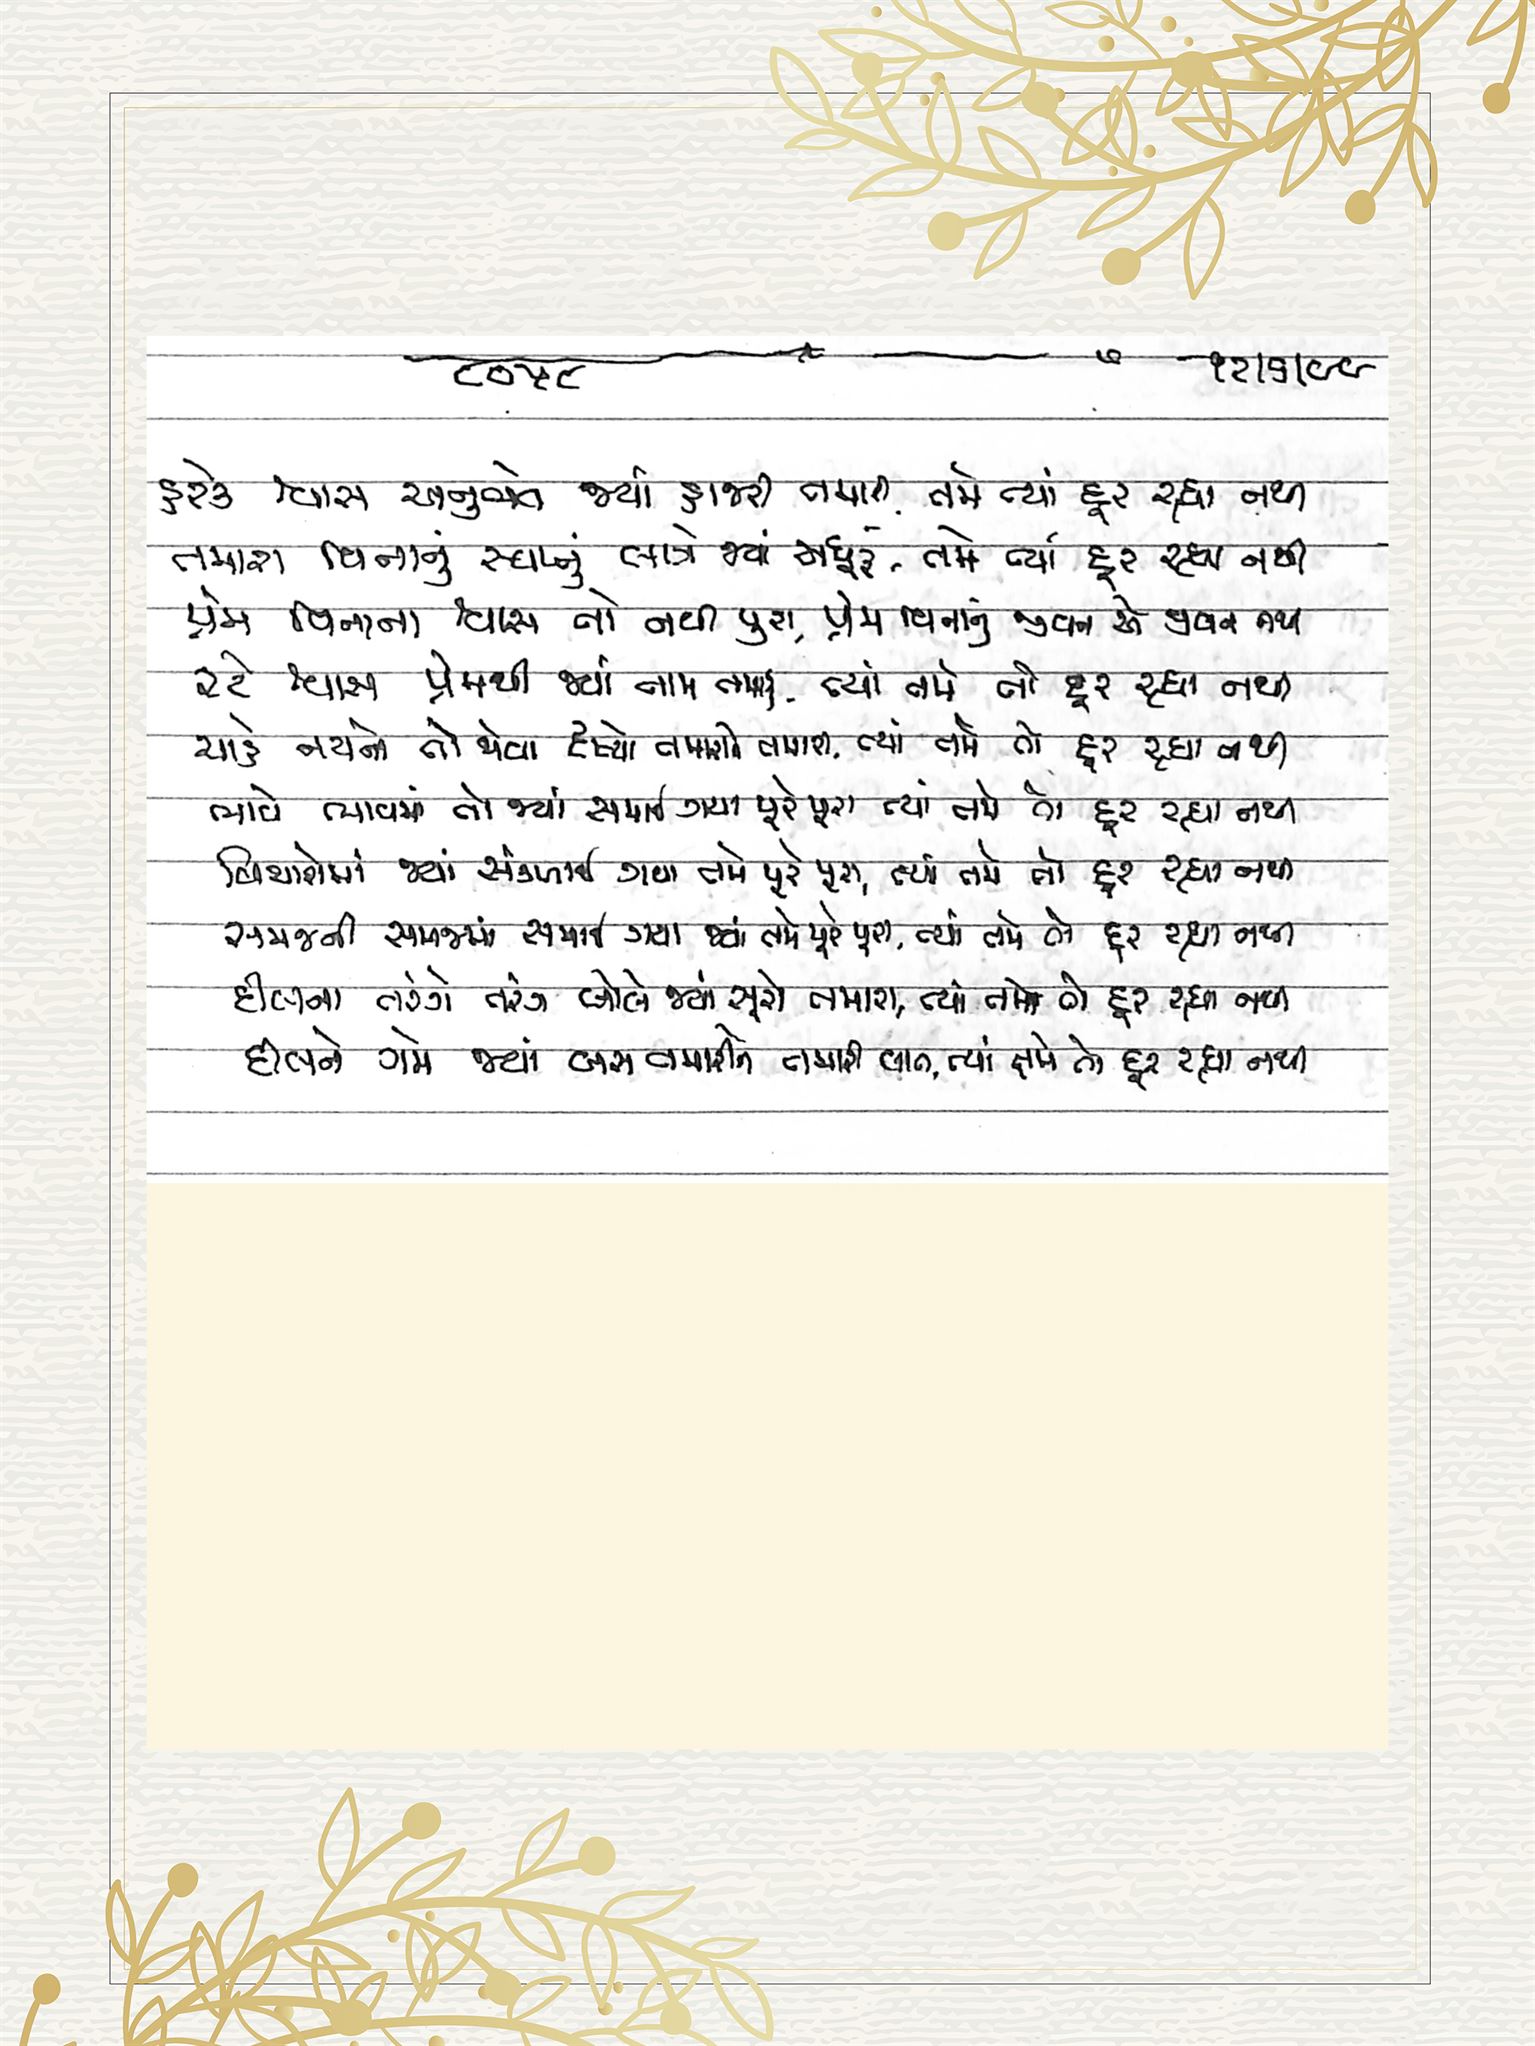 ૮૦૫૮ ૧૨/૬/૯૯
હરેક શ્વાસ અનુભવે જ્યાં હાજરી તમારી, તમે ત્યાં દૂર રહ્યા નથી
તમારા વિનાનું સ્વપ્નું લાગે જ્યાં અધૂરૂં, તમે ત્યાં દૂર રહ્યા નથી
પ્રેમ વિનાના શ્વાસ તો નથી પુરા, પ્રેમ વિનાનું જીવન એ જીવન નથી
રટે શ્વાસ પ્રેમથી જ્યાં નામ તમારૂં, ત્યાં તમે તો દૂર રહ્યા નથી
ચાહે નયનો તો જોવા દૃષ્યો તમારાને તમારા, ત્યાં તમે તો દૂર રહ્યા નથી
ભાવે ભાવમાં તો જ્યાં સમાઈ ગયા પૂરેપૂરા ત્યાં તમે તો દૂર રહ્યા નથી
વિચારોમાં જ્યાં સંકળાઈ ગયા તમે પૂરેપૂરા, ત્યાં તમે તો દૂર રહ્યા નથી
સમજની સમજમાં સમાઈ ગયા જ્યાં તમે પૂરેપૂરા, ત્યાં તમે તો દૂર રહ્યા નથી
દીલના તરંગે તરંગ બોલે જ્યાં સૂરો તમારા, ત્યાં તમે તો દૂર રહ્યા નથી
દીલને ગમે જ્યાં બસ તમારીને તમારી વાત, ત્યાં તમે તો દૂર રહ્યા નથી